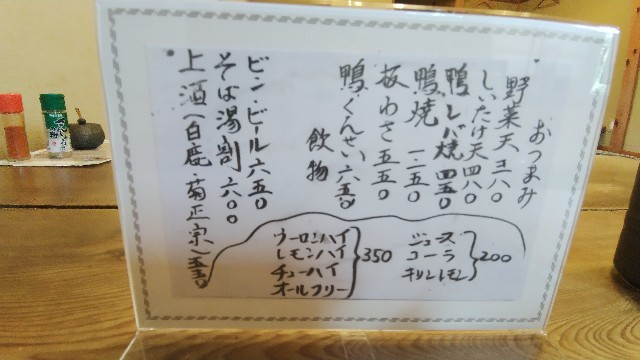 おつまみ
野菜天 三八〇
しいたけ天 四八〇
鴨レバ焼 四五〇
鴨焼 一.一五〇
板わさ 五五〇
鴨くんせい 六五〇
飲物
ビン・ビール 六五〇
そば湯割 六〇〇
上酒(白鹿・菊正宗)五五〇
ジュース
コーラ
キリンレモン
200
ウーロンハイ
レモンハイ
チューハイ
オールフリー
350